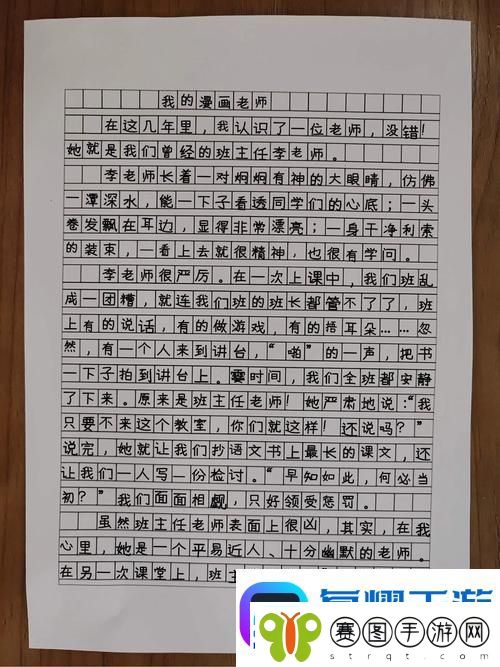 我的漫画老师
在这几年里，我认识了一位老师，没错！
她就是我们曾经的班主任李老师。
李老师长着一对炯炯有神的大眼睛，仿佛
一潭深水，能一下子看透同学们的心底；一头
卷发飘在耳边，显得非常漂亮；一身干净利索
的装束，一看上去就很精神，也很有学问。
李老师很严厉。在一次上课中，我们班乱
成一团糟，就连我们班的班长都管不了了，班
上有的说话，有的做游戏，有的捂耳朵……忽
然，有一个人来到讲台，“啪”的一声，把书
一下子拍到讲台上。霎时间，我们全班都安静
了下来。原来是班主任老师！她严肃地说：“我
只要不来这个教室，你们就这样！还说吗？”
说完，她就让我们抄语文书上最长的课文，还
让我们一人写一份检讨。“早知如此，何必当
初？”我们面面相觑，只好领受惩罚。
虽然班主任老师表面上很凶，其实，在我
心里，她是一个平易近人、十分幽默的老师。
在另一次课堂上，班主
赛图手游网
strqt.com